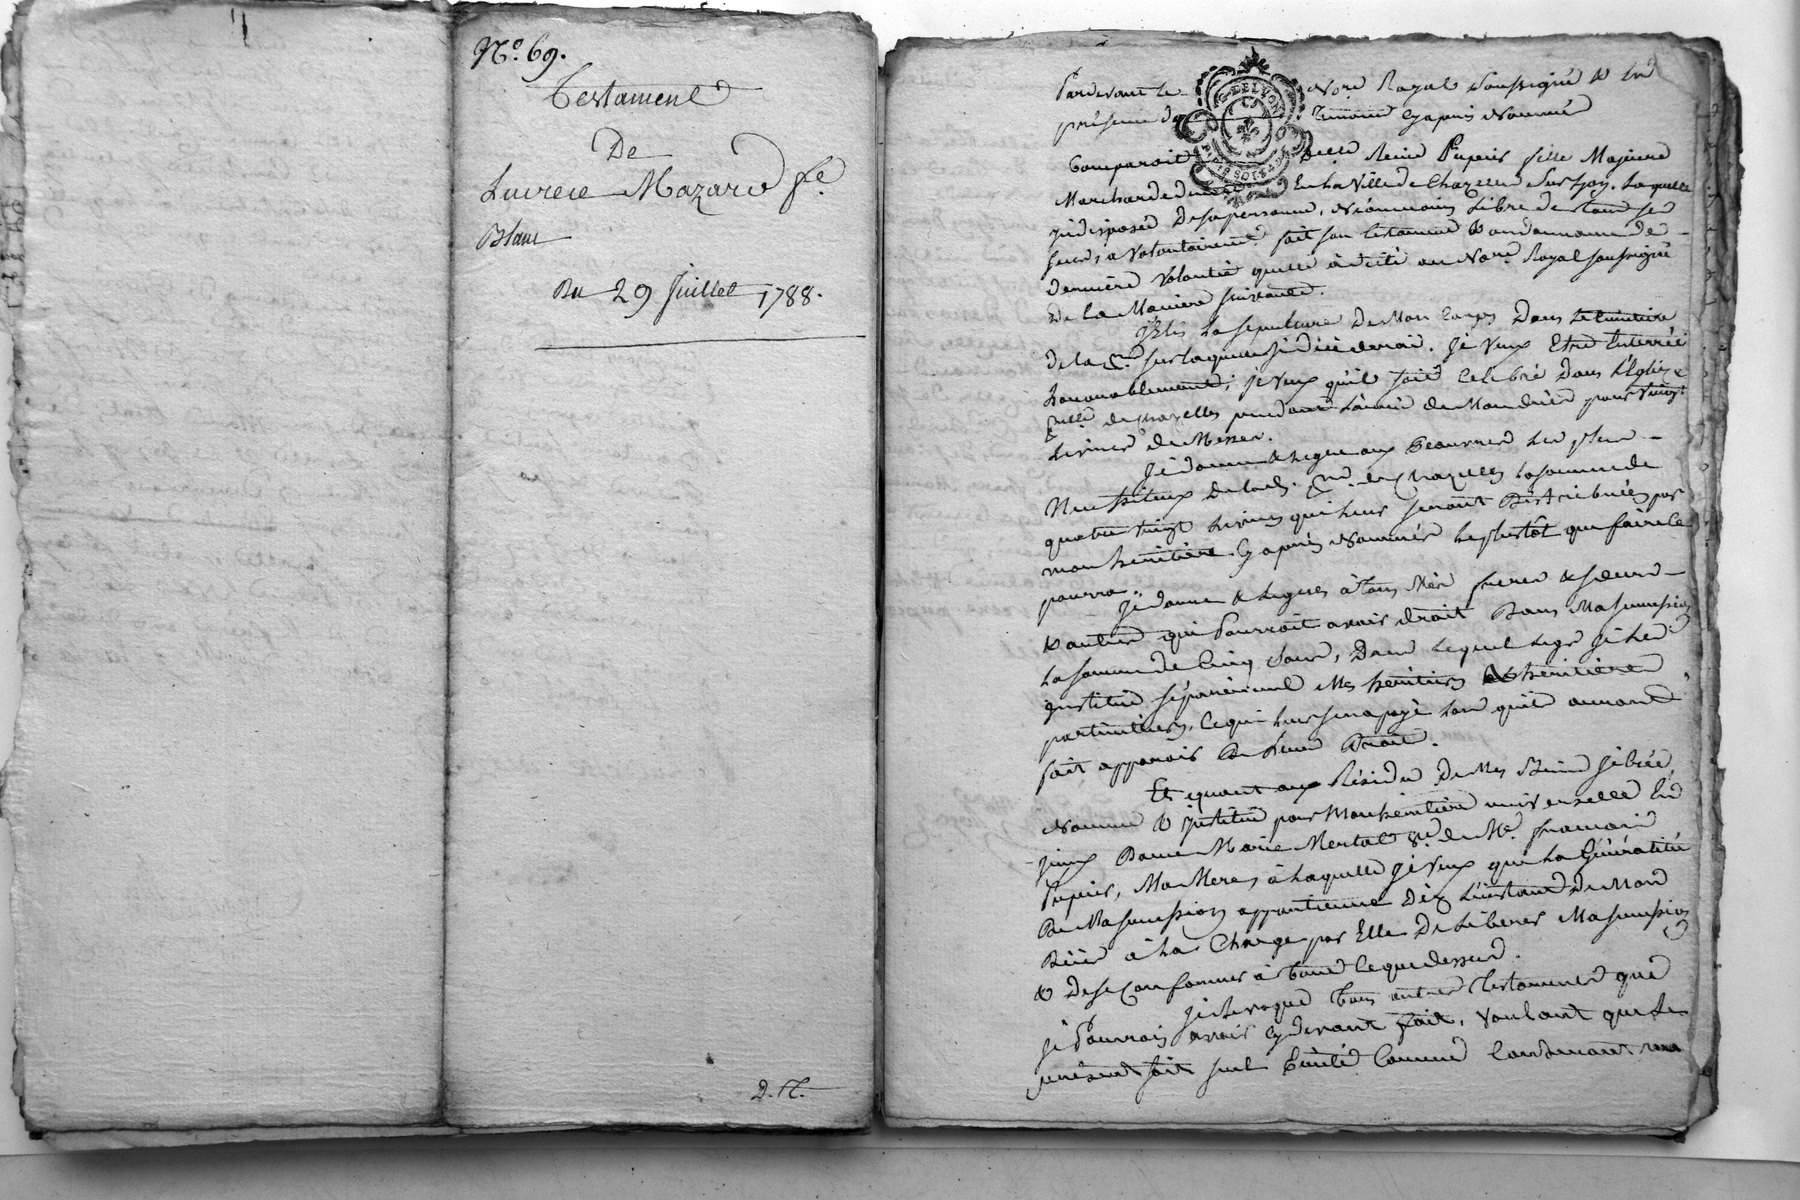 N.º 69.
Testament
De
Lucrece Mazard fe.
Blanc
Du 29 Juillet 1788.
D. N.
Pardevant le Nore. Royal Soussigné & En
présence des Temoins Cy après Nommés
G. DE LYON
Comparoit Delle Reine Pupier fille Majeure
Marchande En la Ville de Chazelles Sur Lyon. Laquelle
indisposée De sa personne, Néonmoins Libre de tous ses
sens, a Volontairemt. fait son testament & ordonnance de
derniere Volonté quelle à dicté au Nore. Royal soussigné
De La Maniere suivante.
J'Elis La sepulture De Mon Corps Dans le Cimetiere
de la sur laquelle je décéderai. Je Veux Etre Enterrée
honnorablement; je Veux qu'il soit Celebré Dans L'Eglise
de Chazelles pendant L'année de Mon décès pour Vingt
Livres de Messes.
Je donne & Legue aux Pauvres Les plus
Necessiteux de lad. de Chazelles La somme de
quatre Vingt Livres qui leur seront Distribuées par
mon heritiere Cy après Nommée le plustôt que faire Se
pourra.
Je donne & Legues à tous Mes freres & soeurs
& autres qui Pourroit avoir droit Dans Ma succession
La somme de Cinq Sous, Dans lequel Legs je Les
institue séparément Mes heritiers & heritieres
particuliers, Ce qui Leur sera payé Lors qu'ils auront
fait apparoir De Leurs Droits.
Et quant aux Résidu De Mes Biens je Crée
Nomme & institue pour Mon heritiere universelle En
Dame Marie Mertal de Me. francois
Pupier, Ma Mere, à Laquelle je Veux que La Généralité
De Ma succession appartienne Dès L'instant De Mon
Décès à La Charge par Elle De Liberer Ma succession
& De se Conformer à tout Ce que dessus.
Je Revoque tous autres Testaments que
je Pourrois avoir Cy devant fait, Voulant que Le
présent soit seul Exécuté Comme Contenant ma